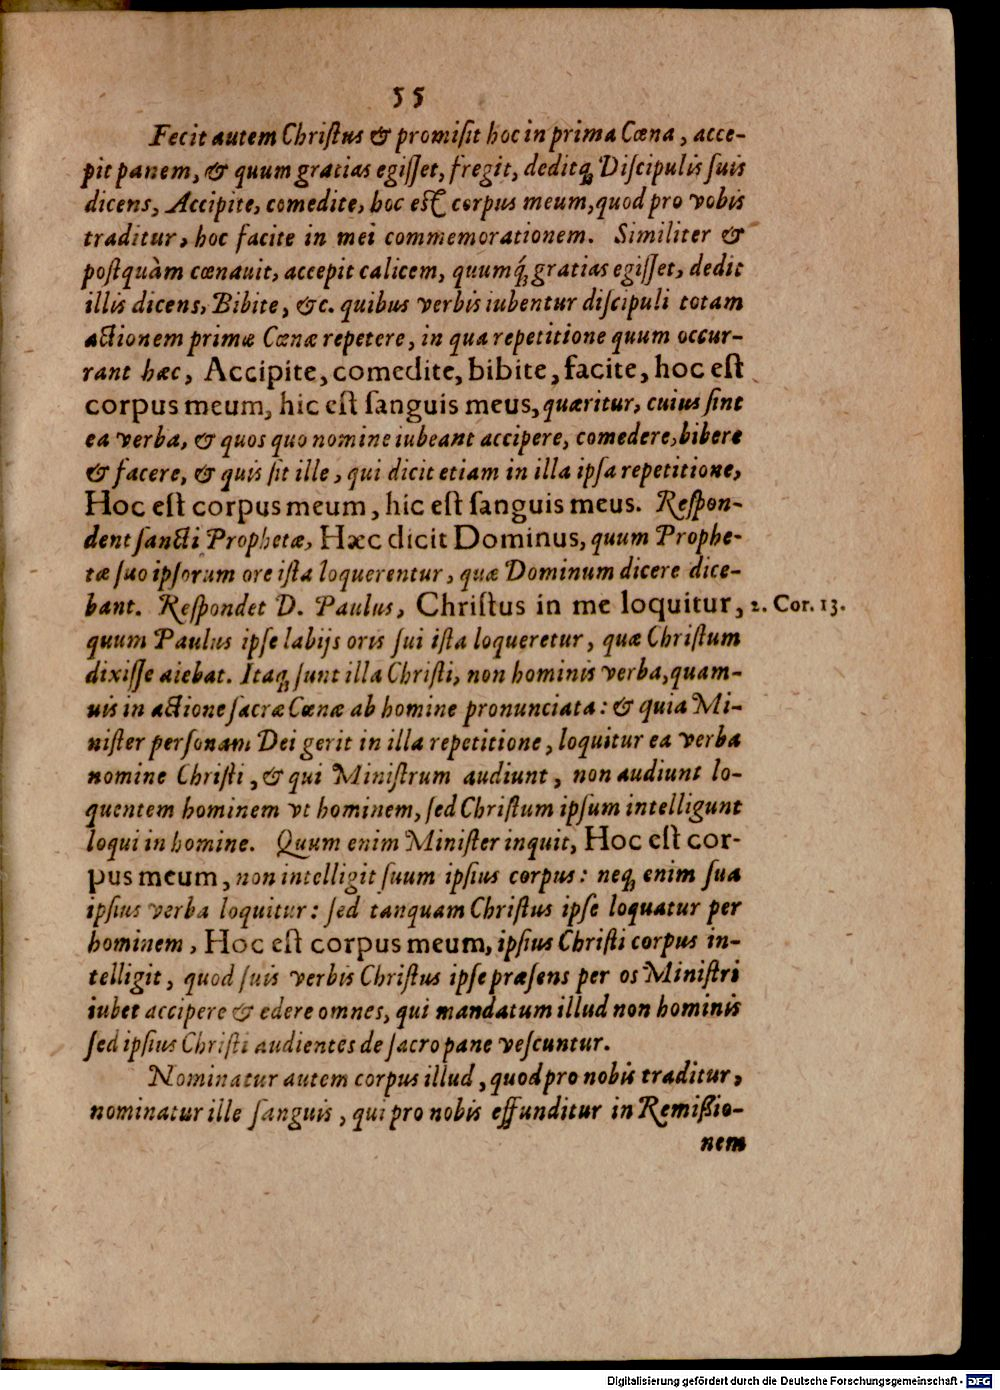 55
Fecit autem Chriſtus & promiſit hoc in prima Cœna, acce-
pit panem, & quum gratias egiſſet, fregit, deditq; Diſcipulis ſuis
dicens, Accipite, comedite, hoc eſt corpus meum, quod pro vobis
traditur, hoc facite in mei commemorationem. Similiter &
poſtquàm cœnauit, accepit calicem, quumq́; gratias egiſſet, dedit
illis dicens, Bibite, &c. quibus verbis iubentur diſcipuli totam
actionem primæ Cœnæ repetere, in qua repetitione quum occur-
rant hæc, Accipite, comedite, bibite, facite, hoc eſt
corpus meum, hic eſt ſanguis meus, quæritur, cuius ſint
ea verba, & quos quo nomine iubeant accipere, comedere, bibere
& facere, & quis ſit ille, qui dicit etiam in illa ipſa repetitione,
Hoc eſt corpus meum, hic eſt ſanguis meus. Reſpon-
dent ſancti Prophetæ, Hæc dicit Dominus, quum Prophe-
tæ ſuo ipſorum ore iſta loquerentur, quæ Dominum dicere dice-
bant. Reſpondet D. Paulus, Chriſtus in me loquitur, 2. Cor. 13.
quum Paulus ipſe labijs oris ſui iſta loqueretur, quæ Chriſtum
dixiſſe aiebat. Itaq; ſunt illa Chriſti, non hominis verba, quam-
uis in actione ſacræ Cœnæ ab homine pronunciata: & quia Mi-
niſter perſonam Dei gerit in illa repetitione, loquitur ea verba
nomine Chriſti, & qui Miniſtrum audiunt, non audiunt lo-
quentem hominem vt hominem, ſed Chriſtum ipſum intelligunt
loqui in homine. Quum enim Miniſter inquit, Hoc eſt cor-
pus meum, non intelligit ſuum ipſius corpus: neq; enim ſua
ipſius verba loquitur: ſed tanquam Chriſtus ipſe loquatur per
hominem, Hoc eſt corpus meum, ipſius Chriſti corpus in-
telligit, quod ſuis verbis Chriſtus ipſe præſens per os Miniſtri
iubet accipere & edere omnes, qui mandatum illud non hominis
ſed ipſius Chriſti audientes de ſacro pane veſcuntur.
Nominatur autem corpus illud, quod pro nobis traditur,
nominatur ille ſanguis, qui pro nobis effunditur in Remiſsio-
nem
Digitalisierung gefördert durch die Deutsche Forschungsgemeinschaft - DFG